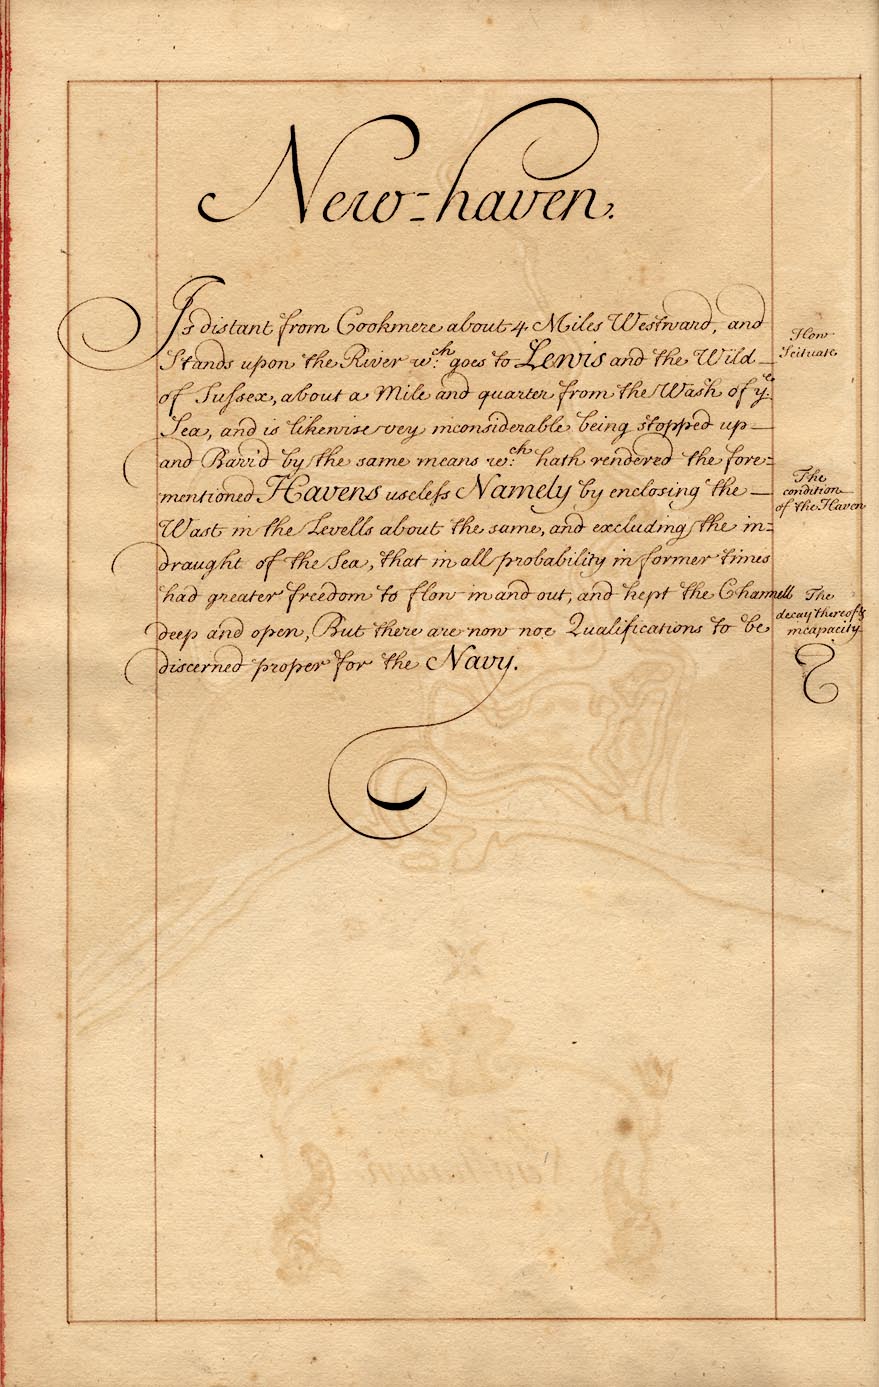 New=haven.
Is distant from Cookmere about 4 Miles Westward, and
Stands upon the River w:ch goes to Lewis and the Wild
of Sussex, about a Mile and quarter from the Wash of ye
Sea, and is likewise vey inconsiderable being stopped up
and Barr'd by the same means w:ch hath rendered the fore=
mentioned Havens useless Namely by enclosing the
Wast in the Levells about the same, and excluding the in=
draught of the Sea, that in all probability in former times
had greater freedom to flow in and out, and kept the Channell
deep and open, But there are now noe Qualifications to be
discerned proper for the Navy.
How
Scituate
The
condition
of the Haven
The
decay thereof &
incapacity